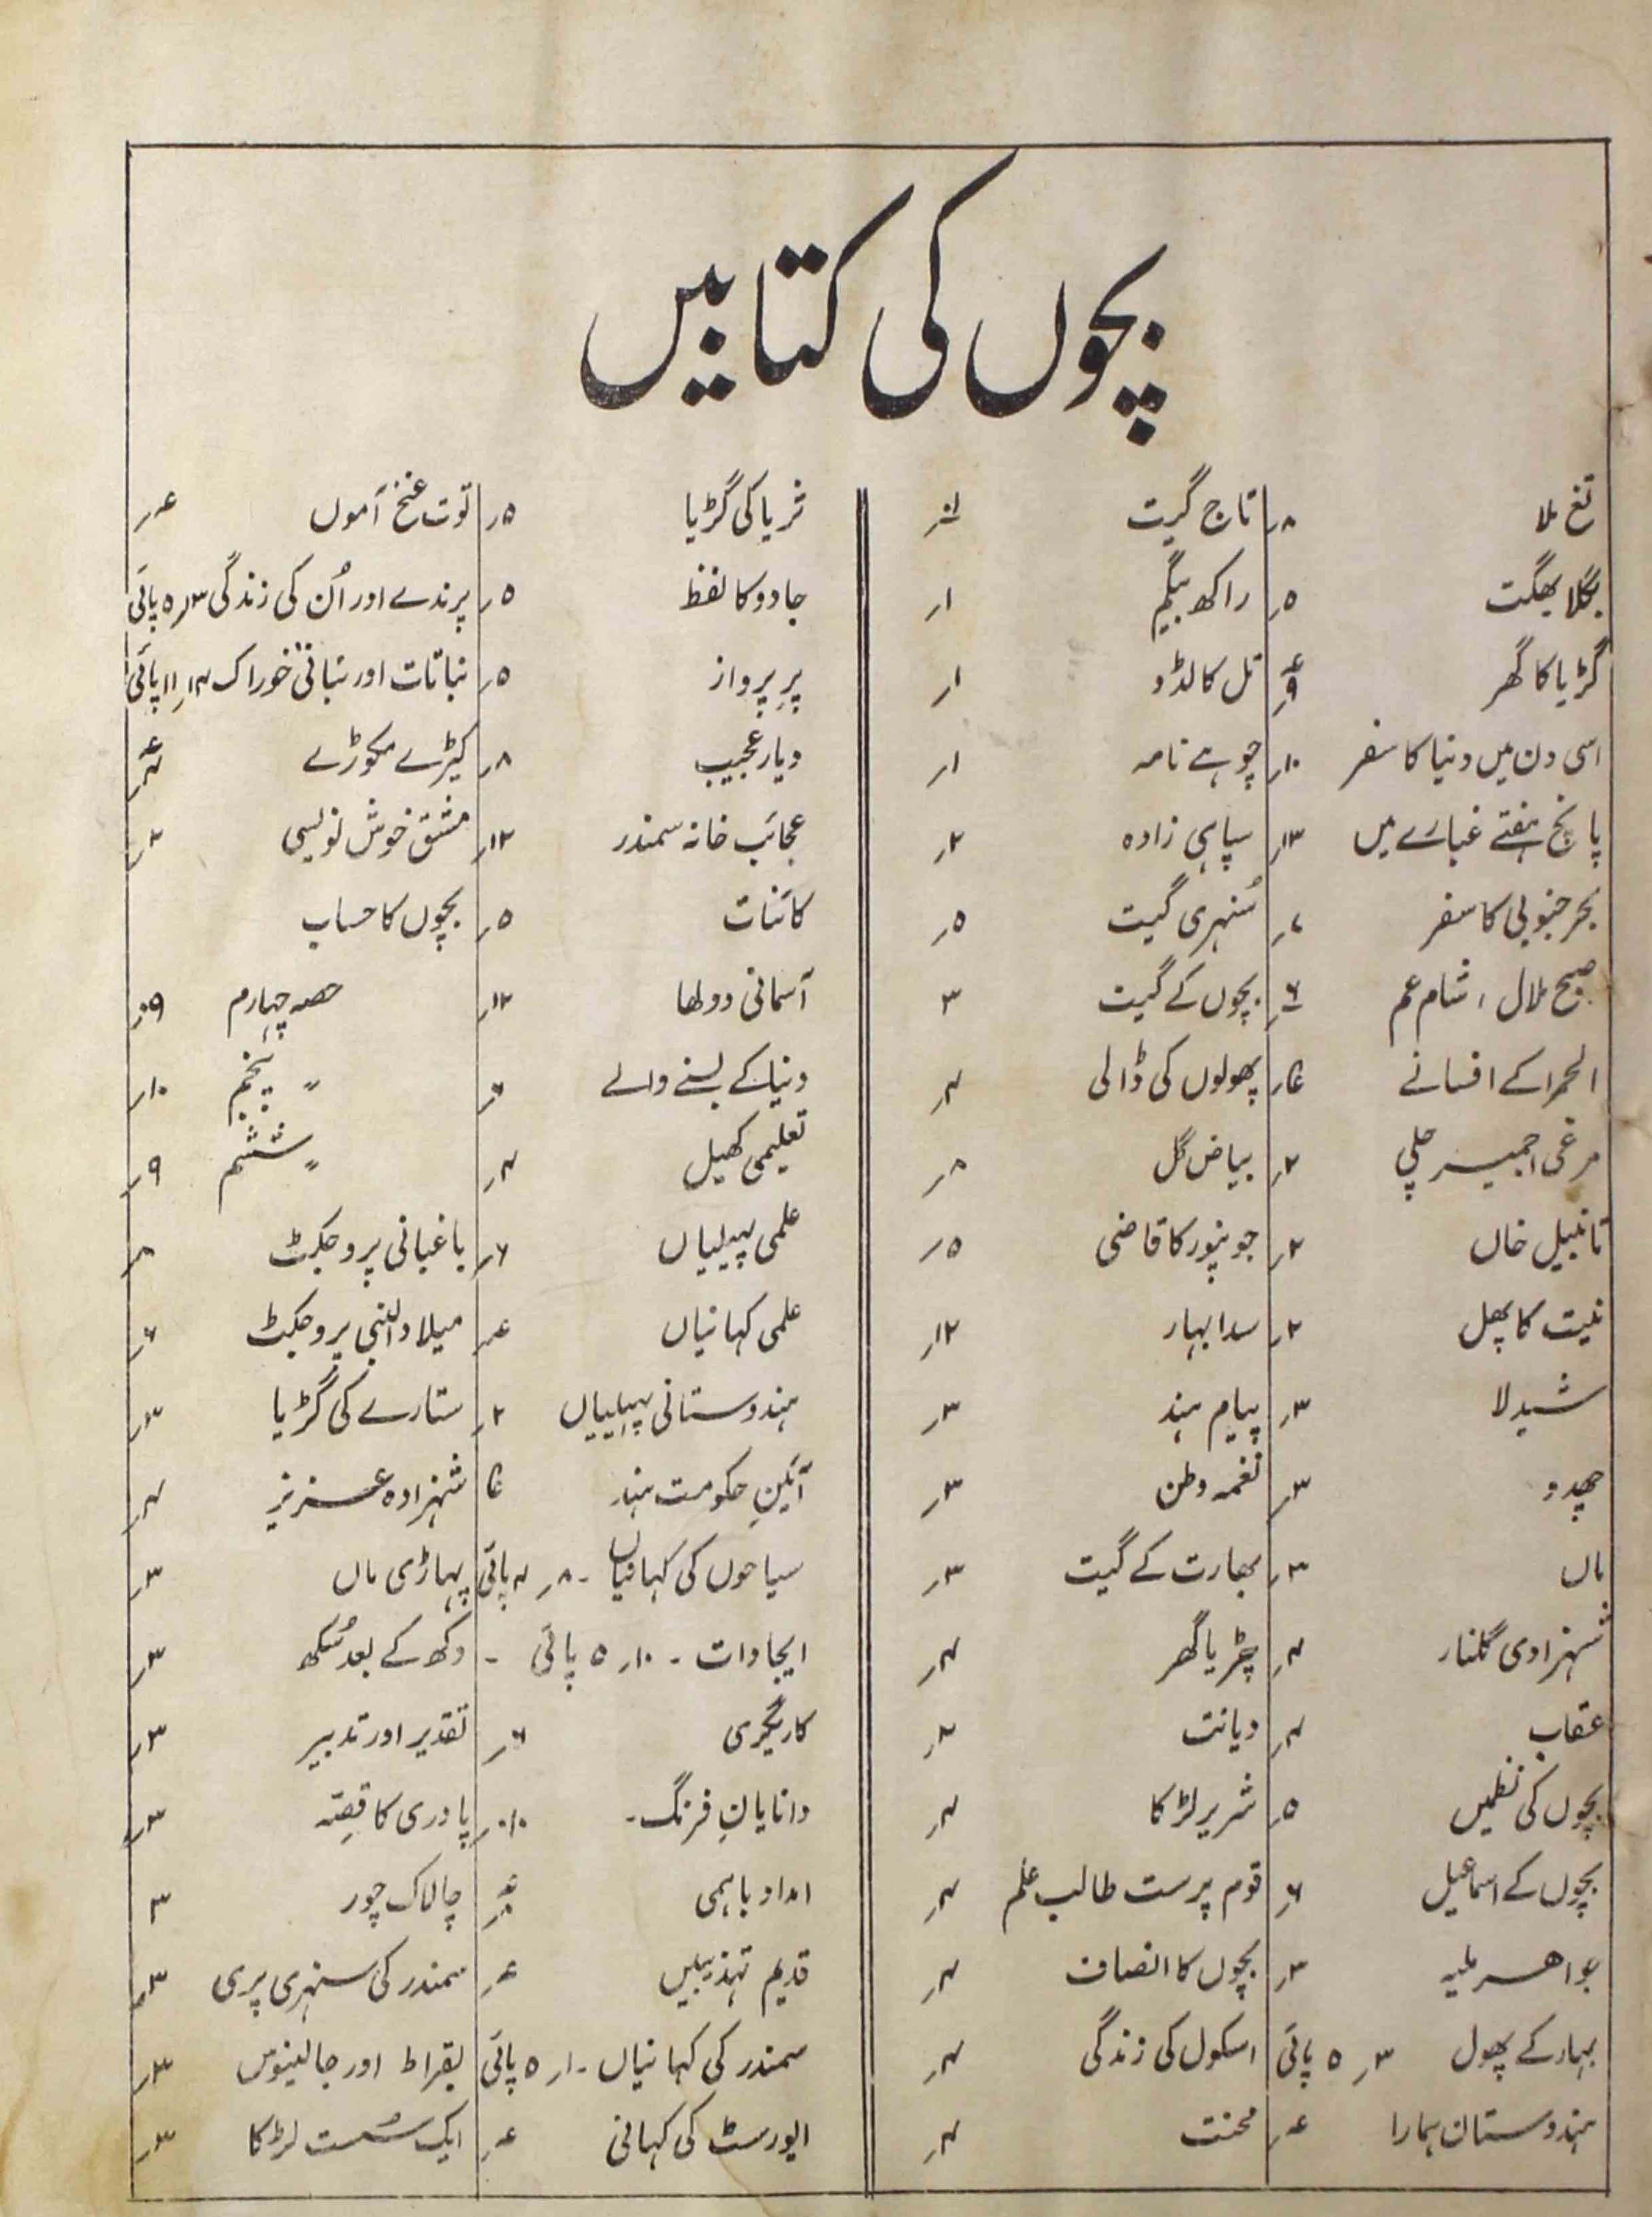 بچوں کی کتابیں
بگلا بھگت ۵؍
گڑیا کا گھر
اسی دن میں دنیا کا سفر ۱۰؍
پانچ ہفتے غبارے میں ۱۳؍
بحر جنوبی کا سفر
الحمرا کے افسانے
مرغی اجمیر چلی ۲؍
تانبیل خاں ۲؍
نیت کا پھل ۲؍
شیدلا ۳؍
چھدو ۳؍
ماں ۳؍
شہزادی گلنار ۴؍
عقاب ۴؍
بچوں کی نظمیں ۵؍
بچوں کے اسماعیل ۶؍
جواہر ملیہ ۳؍
بہار کے پھول ۳؍ ۵ پائی
ہندوستان ہمارا ۴؍
تاج گیت
راکھ بیگم ۱؍
تل کا لڈو ۱؍
چوہے نامہ ۱؍
سپاہی زادہ ۲؍
سُنہری گیت ۵؍
بچوں کے گیت ۳
پھولوں کی ڈالی ۴؍
بیاض گل ۸؍
جونپور کا قاضی ۵؍
سدا بہار ۱۲؍
پیام ہند ۳؍
نغمہ وطن ۳؍
بھارت کے گیت ۳؍
چڑیا گھر ۴؍
دیانت ۲؍
شریر لڑکا ۴؍
قوم پرست طالب علم ۴؍
بچوں کا انصاف ۴؍
اسکول کی زندگی ۴؍
محنت ۴؍
ثریا کی گڑیا ۵؍
جادو کا لفظ ۵؍
پرِ پرواز ۵؍
دیار عجیب ۸؍
عجائب خانہ سمندر ۱۲؍
کائنات ۵؍
آسمانی دولھا ۱۲؍
دنیا کے بسنے والے ۶؍
تعلیمی کھیل ۴؍
علمی پہیلیاں ۶؍
علمی کہانیاں
ہندوستانی پہیلیاں ۲؍
آئینِ حکومت ہند
سیاحوں کی کہانیاں ۔ ۸؍ ۷ پائی
ایجادات ۔ ۱۰؍ ۵ پائی ۔
کاریگری ۶؍
دانایانِ فرنگ ۔ ۱۰؍
امداد باہمی
قدیم تہذیبیں
سمندر کی کہانیاں ۔ ۱۰؍ ۵ پائی
ایورسٹ کی کہانی
پرندے اور اُن کی زندگی ۳؍ ۵ پائی
نباتات اور نباتی خوراک ۱۲؍ ۱۱ پائی
کیڑے مکوڑے
مشق خوش نویسی ۲؍
بچوں کا حساب
حصہ چہارم ۹؍
〃 پنجم ۱۰؍
〃 ششم ۹؍
باغبانی پروجکٹ ۸؍
میلاد النبی پروجکٹ ۶؍
ستارے کی گڑیا ۳؍
شہزادہ عزیز ۴؍
پہاڑی ماں ۳؍
دکھ کے بعد سُکھ ۳؍
تقدیر اور تدبیر ۳؍
پادری کا قِصّہ ۳؍
چالاک چور ۳
سمندر کی سنہری پری ۳؍
بقراط اور جالینوس ۳؍
ایک سُست لڑکا ۳؍